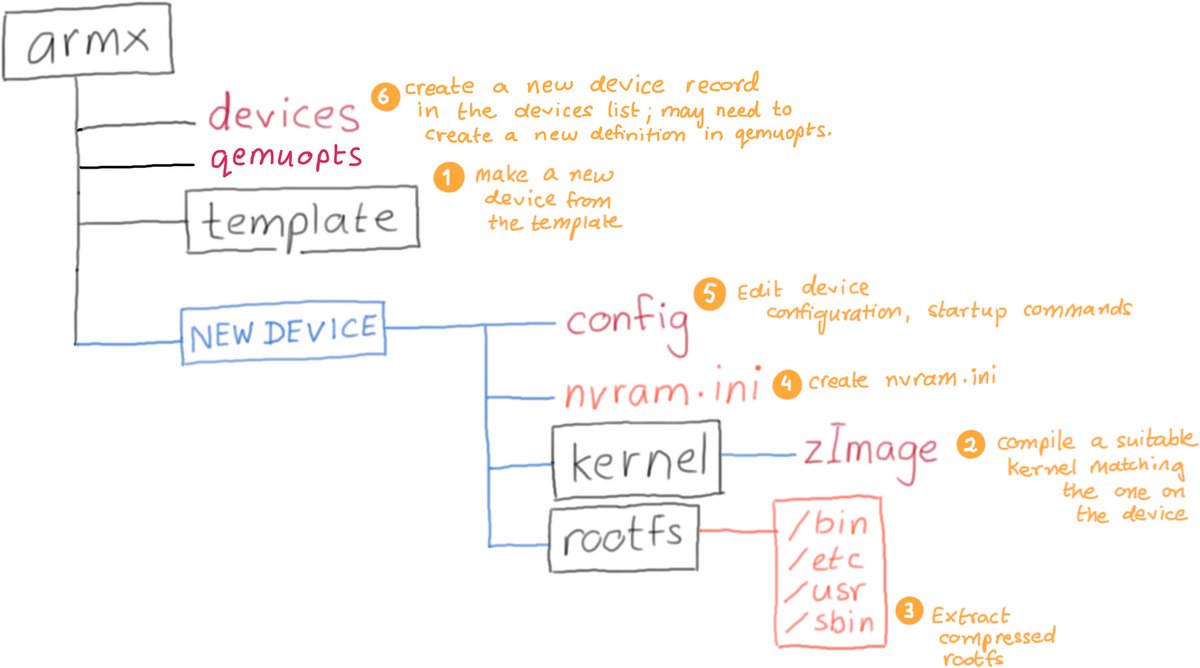 armx
devices
6 create a new device record
in the devices list; may need to
create a new definition in qemuopts.
qemuopts
1 make a new
device from
the template
template
NEW DEVICE
config
5 Edit device
configuration, startup commands
nvram.ini
4 create nvram.ini
kernel
zImage
2 compile a suitable
kernel matching
the one on
the device
rootfs
/bin
/etc
/usr
/sbin
3 Extract
compressed
rootfs